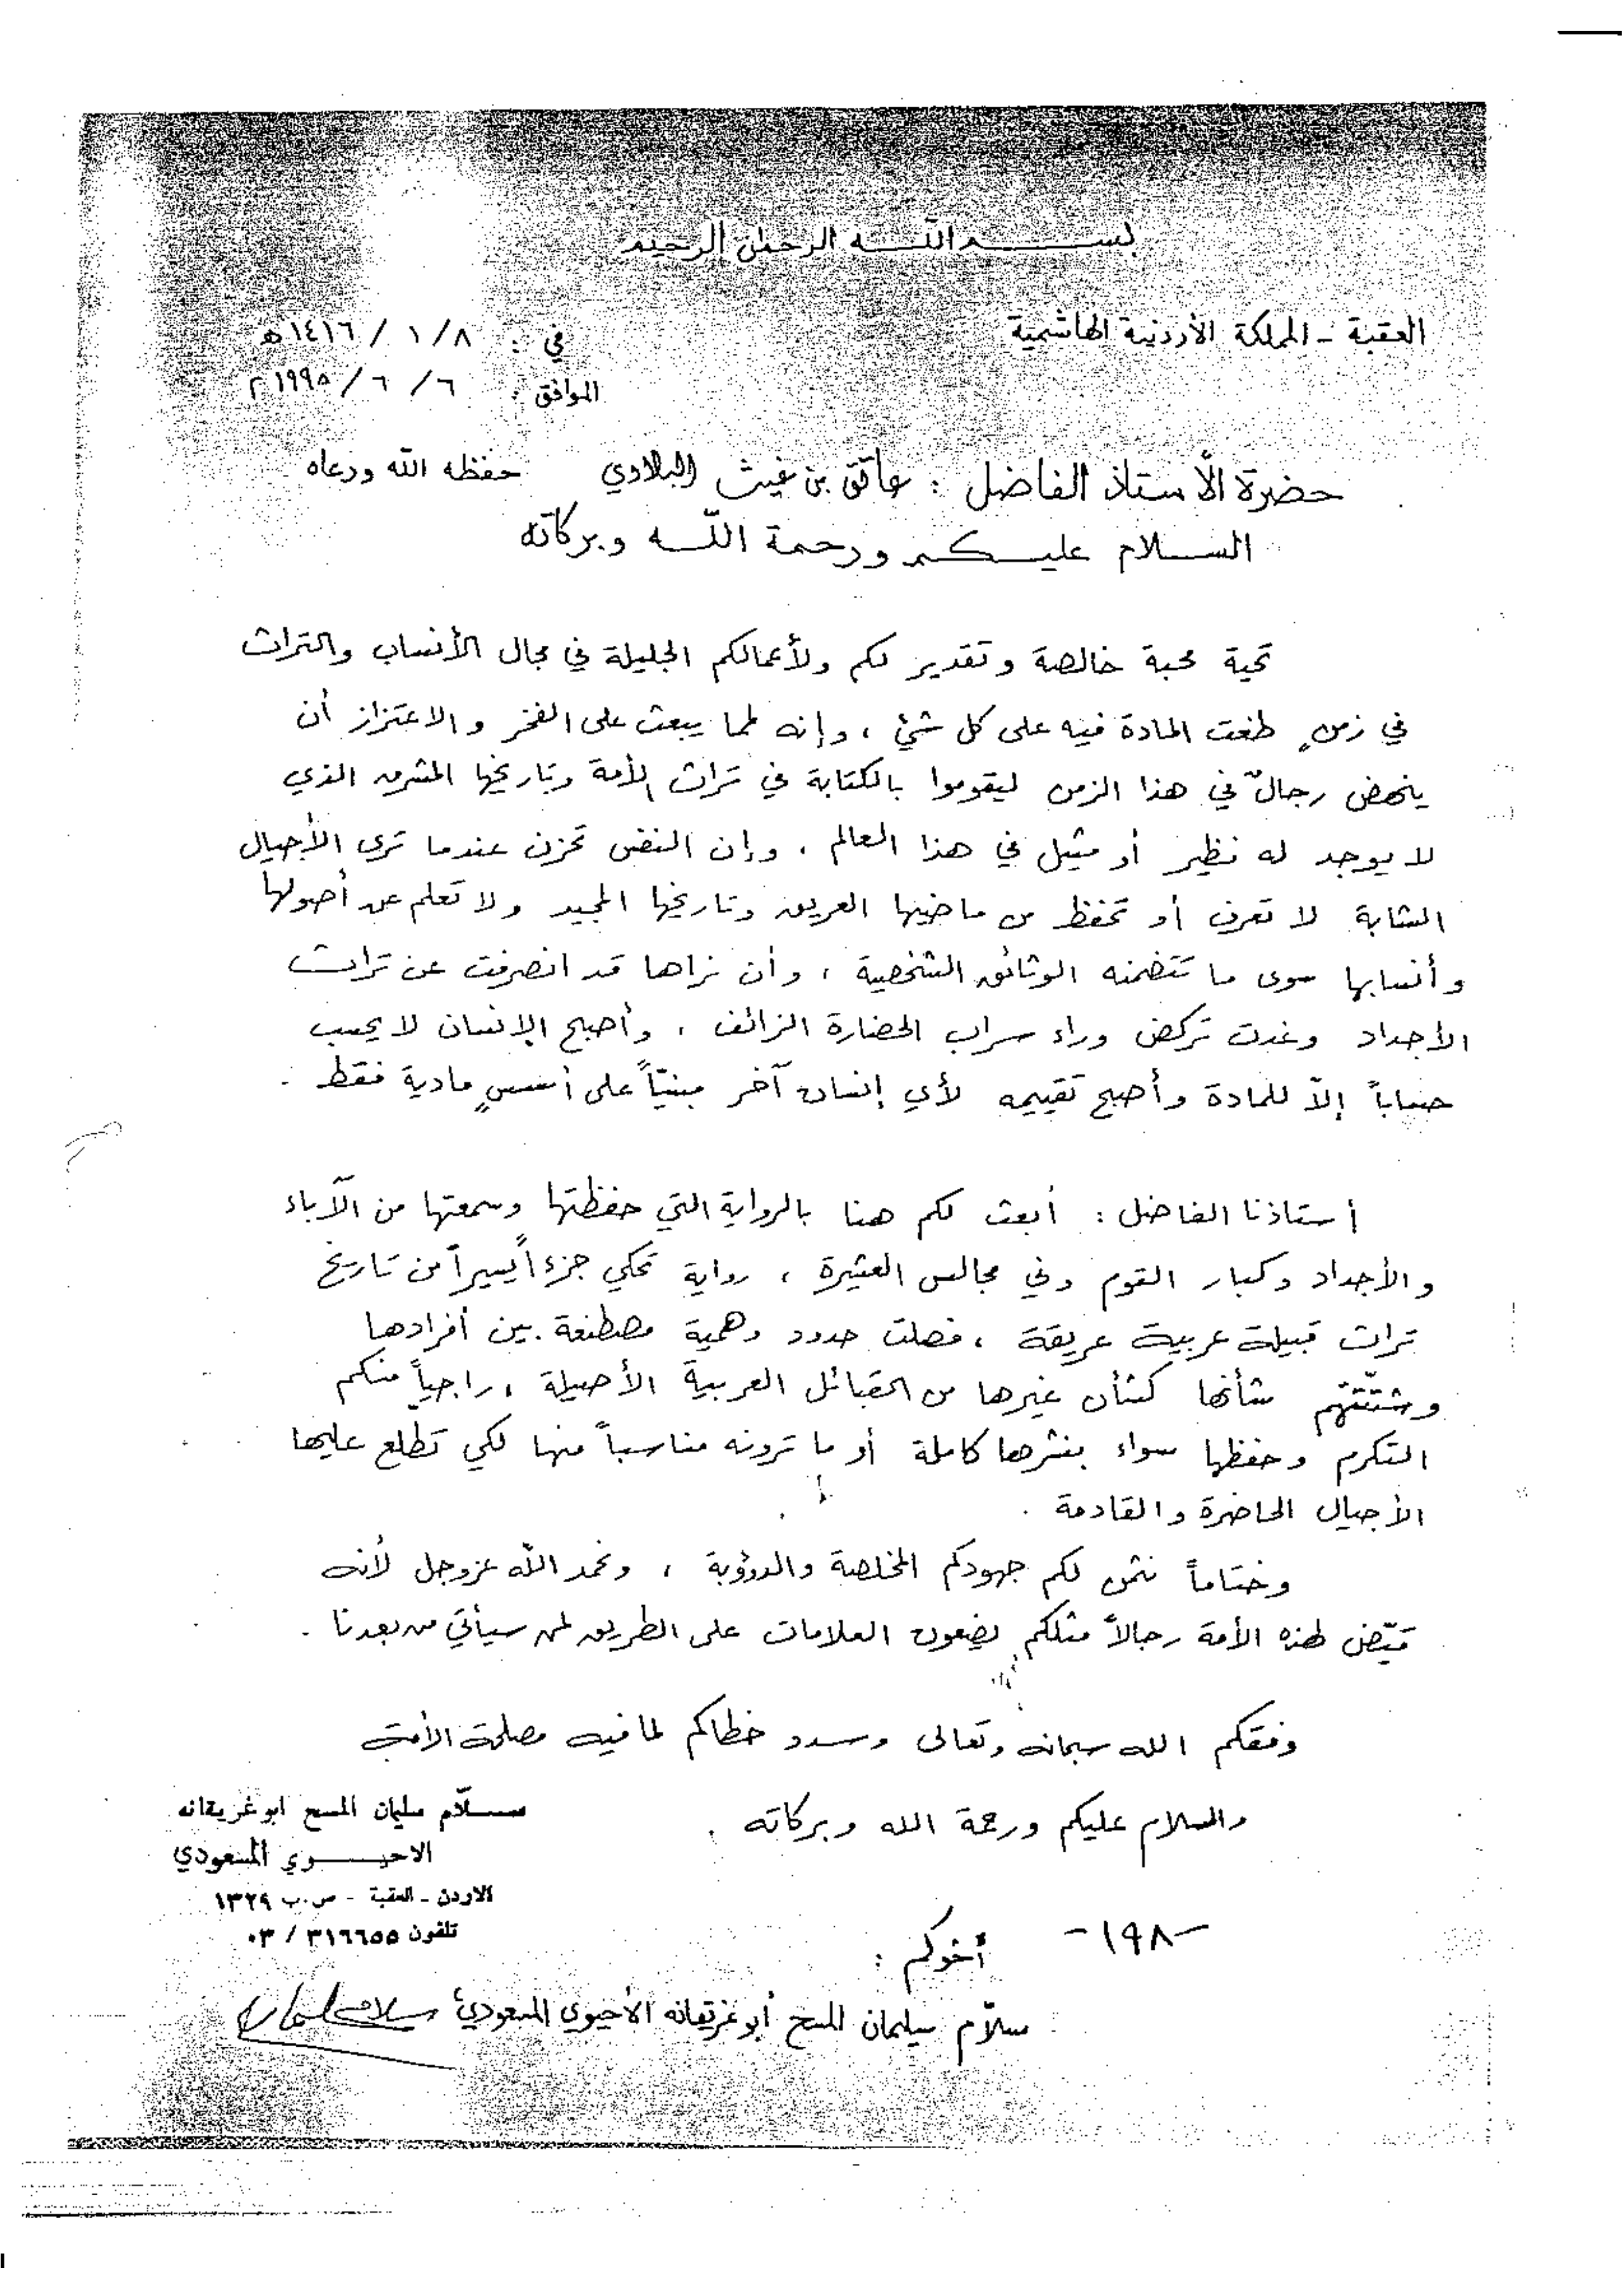 بســـــــم اللـــه الرحمن الرحيم
العقبة - المملكة الأردنية الهاشمية
في : ٨ / ١ / ١٤١٦ هـ
الموافق : ٦ / ٦ / ١٩٩٥ م
حضرة الأستاذ الفاضل : عاتق بن غيث البلادي حفظه الله ورعاه
الســـلام عليـــكم ورحمة اللـــه وبركاته
تحية محبة خالصة وتقدير لكم ولأعمالكم الجليلة في مجال الأنساب والتراث
في زمنٍ طغت المادة فيه على كل شئٍ ، وإنه لمما يبعث على الفخر والاعتزاز أن
ينهض رجالٌ في هذا الزمن ليقوموا بالكتابة في تراث الأمة وتاريخها المشرف الذي
لا يوجد له نظير أو مثيل في هذا العالم ، وإن النفس تحزن عندما ترى الأجيال
الشابة لا تعرف أو تحفظ من ماضيها العريق وتاريخها المجيد ولا تعلم عن أصولها
وأنسابها سوى ما تتضمنه الوثائق الشخصية ، وأن نراها قد انصرفت عن تراث
الأجداد وغدت تركض وراء سراب الحضارة الزائف ، وأصبح الإنسان لا يحسب
حساباً إلاّ للمادة وأصبح تقييمه لأي إنسان آخر مبنيّاً على أسسٍ مادية فقط .
أستاذنا الفاضل : أبعث لكم هنا بالرواية التي حفظتها وسمعتها من الآباء
والأجداد وكبار القوم وفي مجالس العشيرة ، رواية تحكي جزءاً يسيراً من تاريخ
تراث قبيلة عربية عريقة ، فصلت حدود وهمية مصطنعة بين أفرادها
وشتّتتهم شأنها كشأن غيرها من القبائل العربية الأصيلة ، راجياً منكم
التكرم وحفظها سواء بنشرها كاملة أو ما ترونه مناسباً منها لكي تطّلع عليها
الأجيال الحاضرة والقادمة .
وختاماً نثمن لكم جهودكم المخلصة والدؤوبة ، ونحمد الله عز وجل لأنه
قيّض لهذه الأمة رجالاً مثلكم يضعون العلامات على الطريق لمن سيأتي من بعدنا .
وفقكم الله سبحانه وتعالى وسدد خطاكم لما فيه مصلحة الأمة
والسلام عليكم ورحمة الله وبركاته .
ســـلّام سليمان المسح ابو غريقانه
الاحيـــــوي المسعودي
الاردن - العقبة - ص.ب ١٣٢٩
تلفون ٣١٦٦٥٥ / ٠٣
-١٩٨-
أخوكم :
سلّام سليمان المسح أبو غريقانه الأحيوي المسعودي